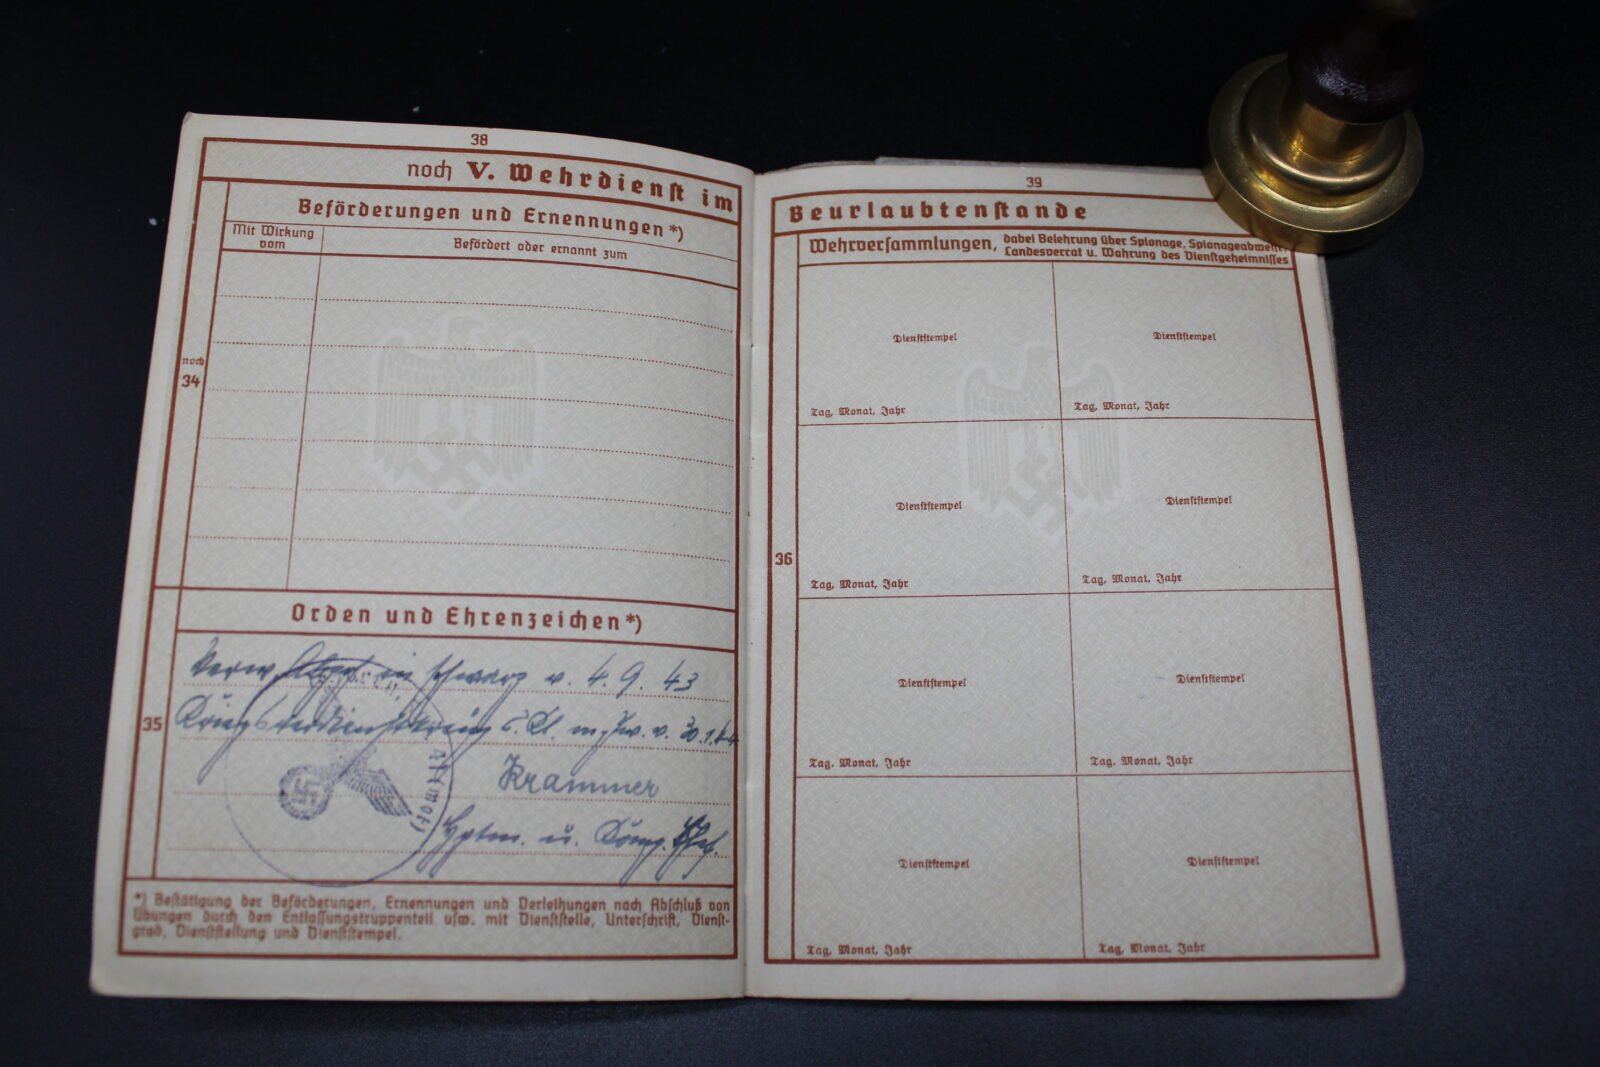 38
noch V. Wehrdienst im
Beförderungen und Ernennungen*)
Mit Wirkung vom
Befördert oder ernannt zum
noch
34
Orden und Ehrenzeichen*)
35
Verw. Abz. in schwarz v. 4. 9. 43
Kriegsverdienstkreuz 2. Kl. m. Schw. v. 30.1.44
Krammer
Hptm. u. Komp. Chef.
*) Bestätigung der Beförderungen, Ernennungen und Verleihungen nach Abschluß von
Übungen durch den Entlassungstruppenteil usw. mit Dienststelle, Unterschrift, Dienst-
grad, Dienststellung und Dienststempel.
39
Beurlaubtenstande
Wehrversammlungen, dabei Belehrung über Spionage, Spionageabwehr,
Landesverrat u. Wahrung des Dienstgeheimnisses
36
Dienststempel
Dienststempel
Tag, Monat, Jahr
Tag, Monat, Jahr
Dienststempel
Dienststempel
Tag, Monat, Jahr
Tag, Monat, Jahr
Dienststempel
Dienststempel
Tag, Monat, Jahr
Tag, Monat, Jahr
Dienststempel
Dienststempel
Tag, Monat, Jahr
Tag, Monat, Jahr